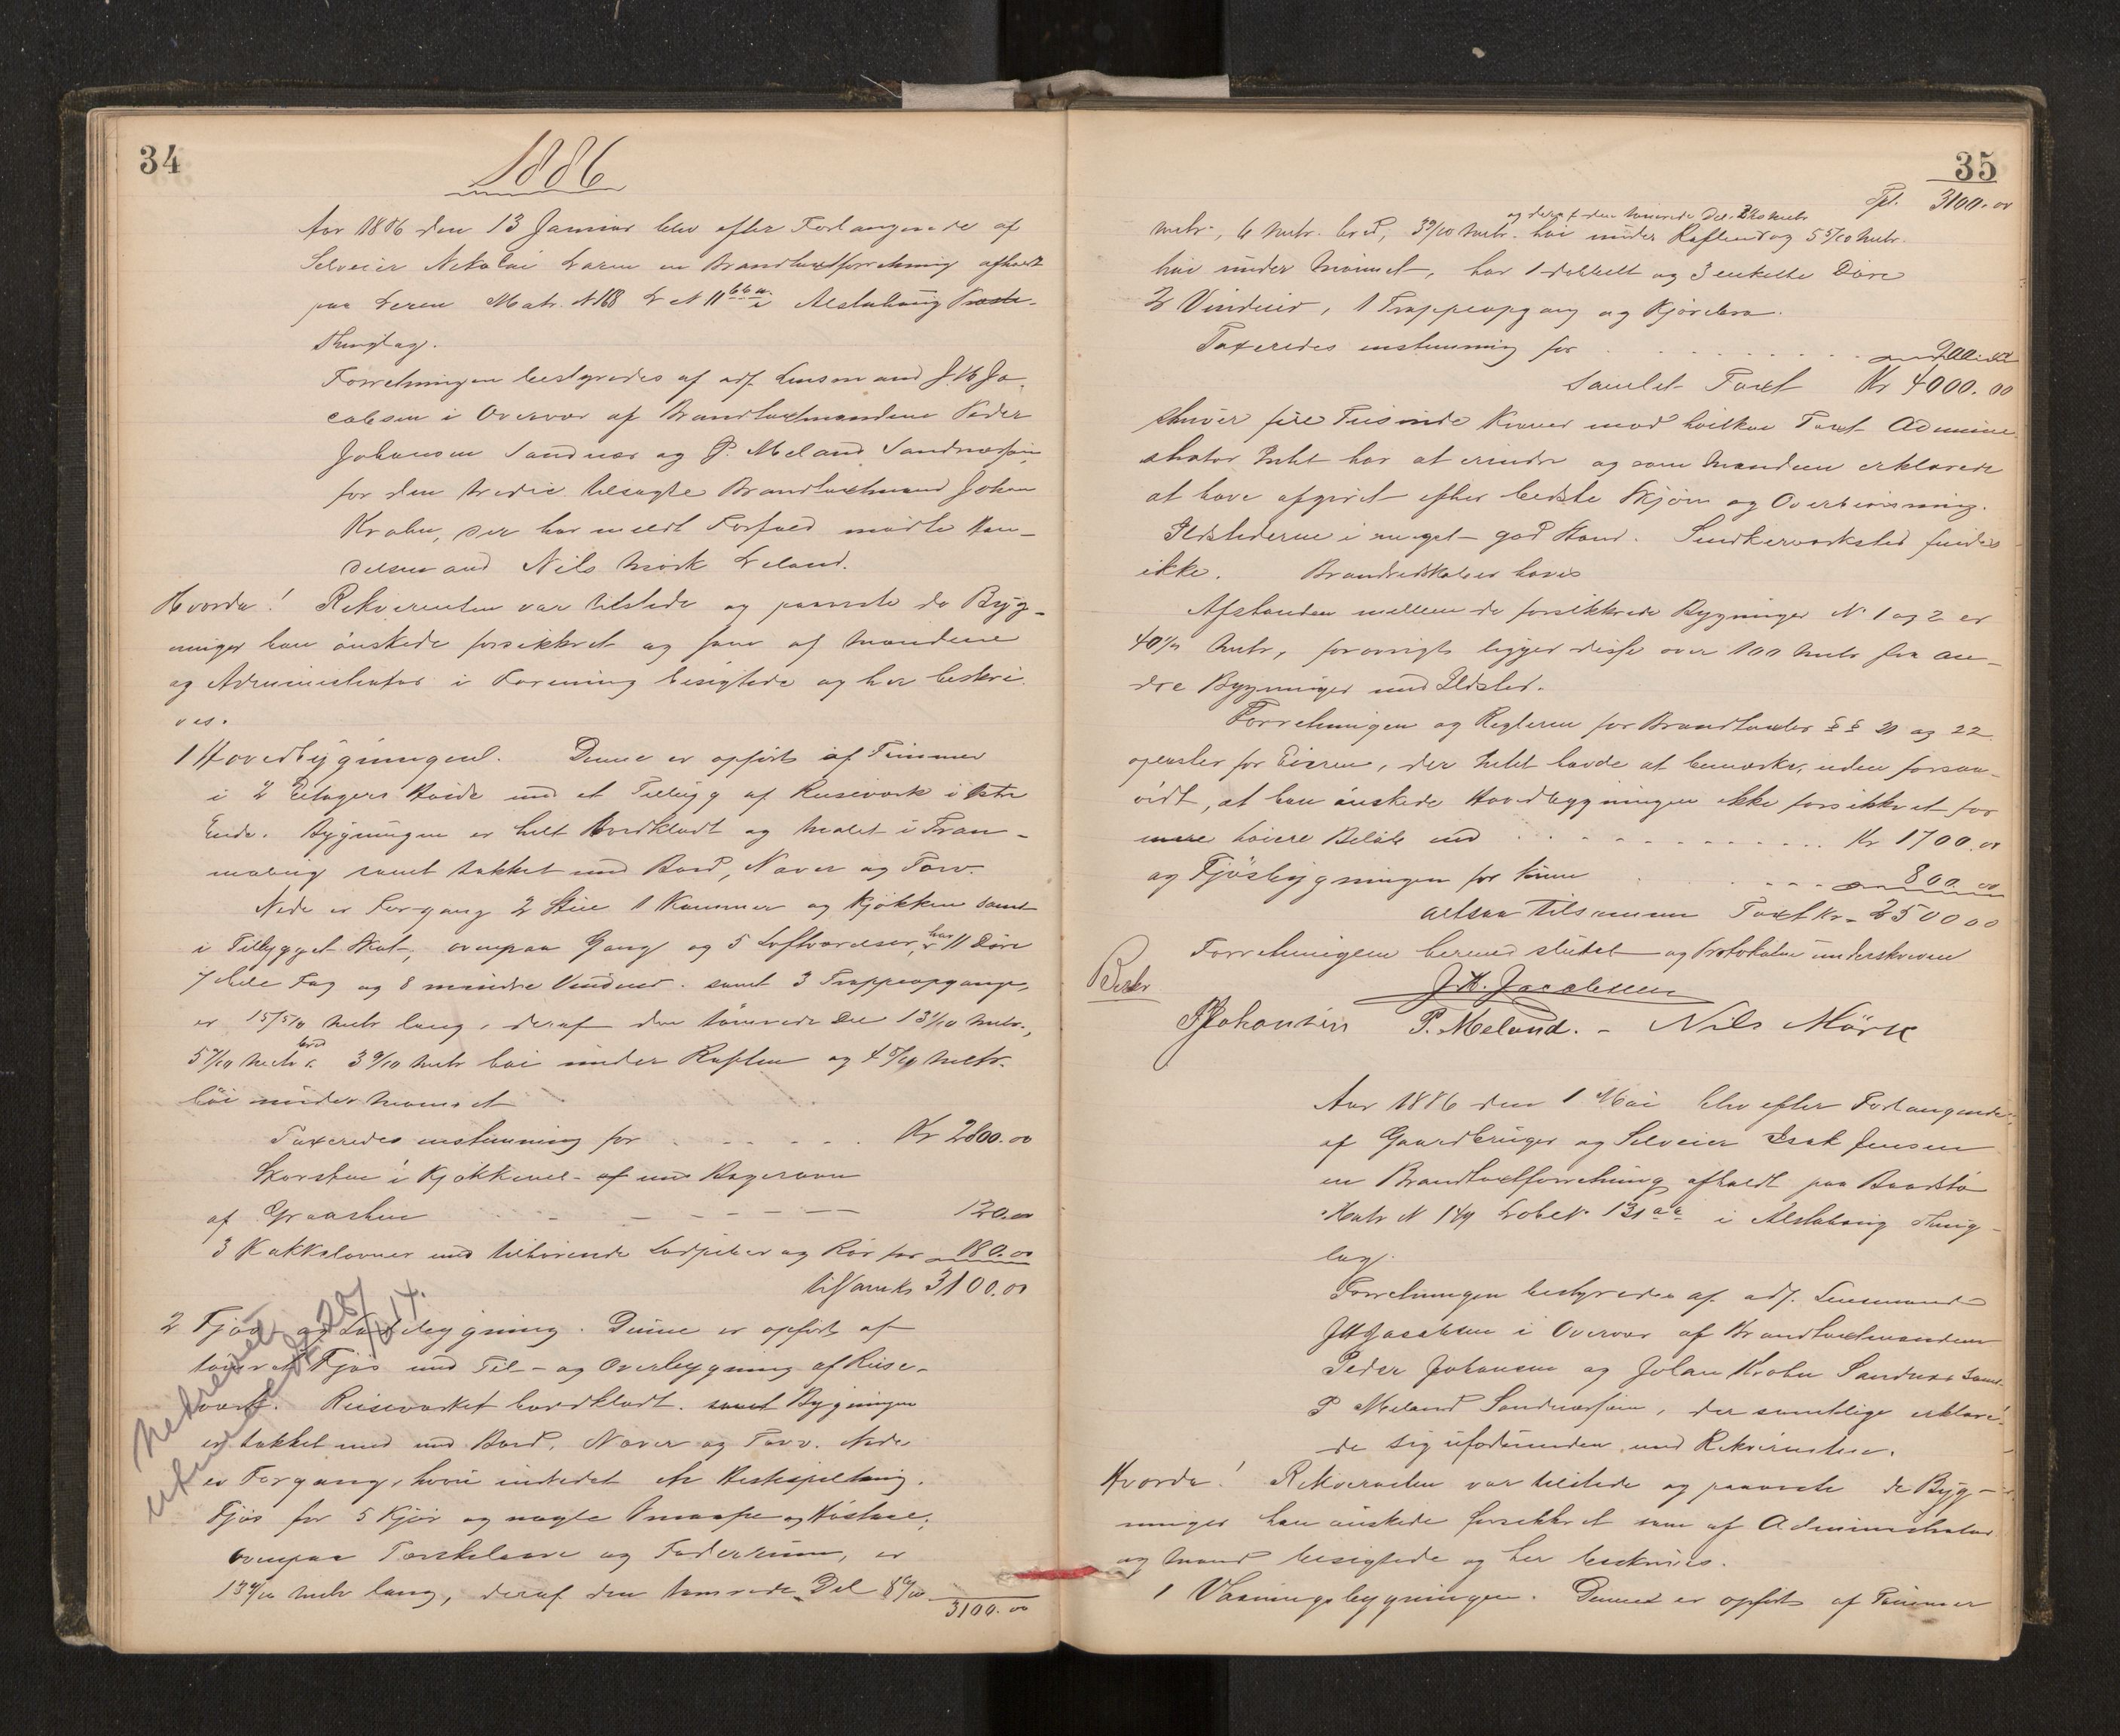 34
1886
Aar 1886 den 13 Januar blev efter Forlangende af
Selveier Nikolai Laren en Brandtaxtforretning afholdt
paa Leren Matr. N 168 L N 11 bba i Alstahaug
Thinglag.
Forretningen bestyredes af adj. Lensmand J. H. Ja-
cobsen i Overvær af Brandtaxtmændene Peder
Johansen Sandnæs og P. Meland Sandnæssjøen,
for den tredie tilsagte Brandtaxtmand Johan
Krohn, der har meldt Forfald mødte Han-
delsmand Nils Mørk Leland.
Hvorda! Rekvirenten var tilstede og paaviste de Byg-
ninger han ønskede forsikkret og som af Mændene
og Administrator i Forening besigtede og her beskri-
ves.
1 Hovedbygningen. Denne er opført af Tømmer
i 2 Etagers Høide med et Tilbygg af Reisværk i østre
Ende. Bygningen er helt Bordklædt og Malet i Tran-
maling samt tækket med Bord, Næver og Torv.
Nede er Forgang 2 Stuer 1 Kammer og Kjøkken samt
i Tilbygget Skot, ovenpaa Gang og 5 Loftværelser, har 11 Døre
7 hele Fag og 8 mindre Vinduer samt 3 Trappeopgange,
er 15 5/10 Metr lang, deraf den tømrede Del 13 1/10 Metr.,
5 7/10 Metr bred 3 9/10 Metr høi under Raften og 4 5/10 Metr.
høi under Mønnet
Taxeredes enstemmig for . . . . . Kr 2800.00
Skorsten i Kjøkkenet af med Bagerovn
af Graasten - - - - - 120.00
3 Kakkelovner med tilhørende Ladpiber og Rør for 180.00
tilsamts 3100.00
2 Fjøs og Ladebygning. Denne er opført af
tømret Fjøs med Til- og Overbygning af Reis-
værk. Reisværket bordklædt. samt Bygningen
er tækket med med Bord, Næver og Torv. Nede
er Forgang, hvori indredet en Hestespiltaug.
Fjøs for 5 Kjør og nogle Smaafæ og Høstaal,
ovenpaa Tærskelaave og Foderrum, er
13 4/10 Metr lang, deraf den tømrede Del 8 6/10
3100.00
35
Tpt. 3100.00
og deraf den tømrede Del
Metr., 6 Metr. bred, 3 9/10 Metr. høi under Raften og 5 5/10 Metr.
høi under Mønnet, har 1 dobbelt og 3 enkelte Døre
2 Vinduer, 1 Trappeopgang og Kjørebro.
Taxeredes enstemmig for . . . . . . . 900.00
Samlet Taxt Kr 4000.00
skriver fire Tusinde Kroner mod hvilken Taxt Admini-
strator Intet har at erindre og som Mændene erklærede
at have afgivet efter bedste Skjøn og Overbevisning.
Ildstederne i meget god Stand. Snedkerværksted findes
ikke. Brandredskaber haves
Afstanden mellem de forsikkrede Bygninger N. 1 og 2 er
40 1/2 Metr, forøvrigt ligger disse over 100 Metr fra an-
dre Bygninger med Ildsted.
Forretningen og Reglerne for Brandtaxter §§ 21 og 22
oplæstes for Eieren, der Intet havde at bemærke, uden forsaa-
vidt, at han ønskede Hovedbygningen ikke forsikkret for
mere høiere Beløb end . . . . . . . Kr 1700.00
og Fjøsbygningen for kun . . . . 800.00
altsaa tilsammen Taxt Kr. 2500 00
Forretningen hermed sluttet og Protokolen underskreven
Beskr
J. H. Jacobsen
P Johansen P. Meland. - Nils Mörk
Aar 1886 den 1 Mai blev efter Forlangende
af Gaardbruger og Selveier Isak Jensen
en Brandtaxtforretning afholdt paa
Matr N 149 Løbe N. 131 aa i Alstahaug Thing-
lag.
Forretningen bestyredes af adj. Lensmand
J H Jacobsen i Overvær af Brandtaxtmændene
Peder Johansen og Johan Krohn Sandnæs samt
P Meland Sandnæssjøen, der samtlige erklære-
de sig ubeslægtede med Rekvirenten.
Hvorda! Rekvirenten var tilstede og paaviste de Byg-
ninger han ønskede forsikkret som af Administrator
og Mænd besigtede og her beskrives.
1 Vaaningsbygningen. Denne er opført af Tømmer